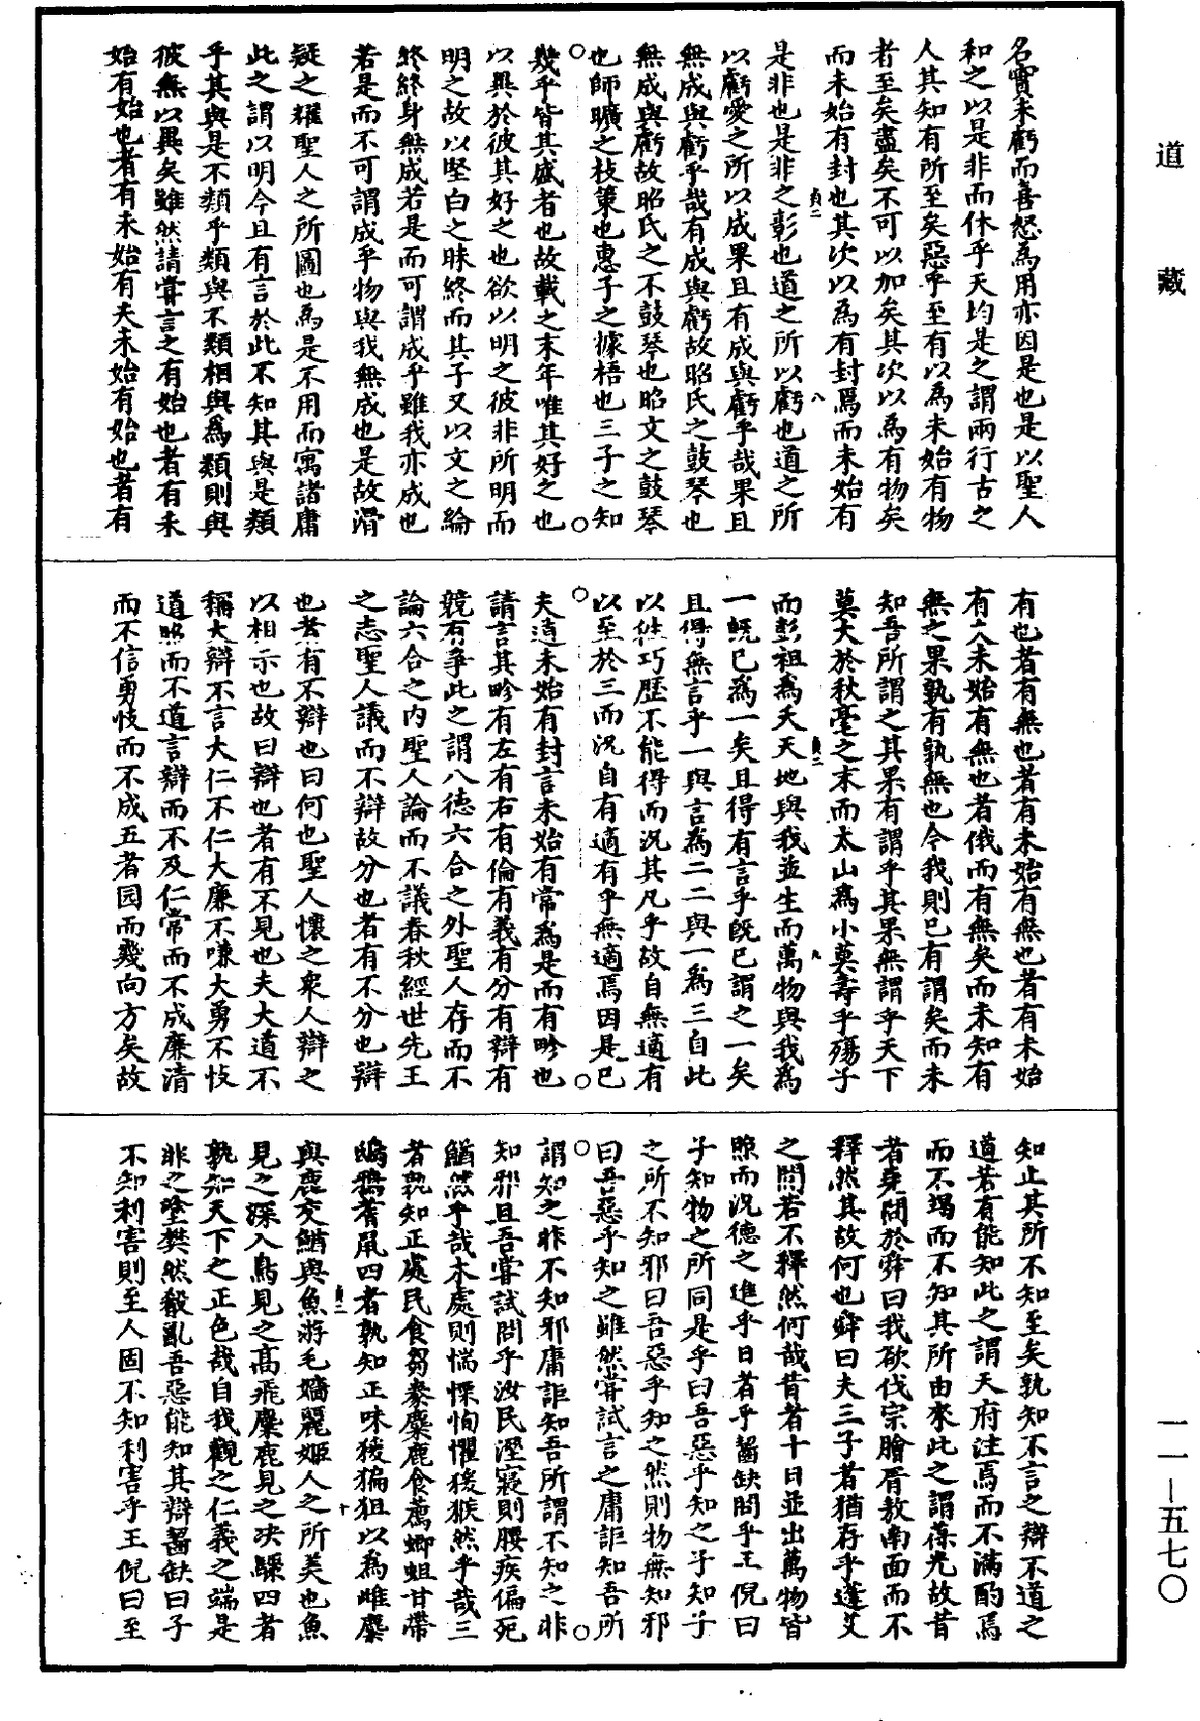 道藏
一一—五七〇
名實未虧而喜怒為用亦因是也是以聖人
和之以是非而休乎天均是之謂兩行古之
人其知有所至矣惡乎至有以為未始有物
者至矣盡矣不可以加矣其次以為有物矣
而未始有封也其次以為有封焉而未始有
是非也是非之彰也道之所以虧也道之所
以虧愛之所以成果且有成與虧乎哉果且
無成與虧乎哉有成與虧故昭氏之鼓琴也
無成與虧故昭氏之不鼓琴也昭文之鼓琴
也師曠之枝策也惠子之據梧也三子之知
幾乎皆其盛者也故載之末年唯其好之也
以異於彼其好之也欲以明之彼非所明而
明之故以堅白之昧終而其子又以文之綸
終終身無成若是而可謂成乎雖我亦成也
若是而不可謂成乎物與我無成也是故滑
疑之耀聖人之所圖也為是不用而寓諸庸
此之謂以明今且有言於此不知其與是類
乎其與是不類乎類與不類相與為類則與
彼無以異矣雖然請嘗言之有始也者有未
始有始也者有未始有夫未始有始也者有
有也者有無也者有未始有無也者有未始
有夫未始有無也者俄而有無矣而未知有
無之果孰有孰無也今我則已有謂矣而未
知吾所謂之其果有謂乎其果無謂乎天下
莫大於秋毫之末而太山為小莫壽乎殤子
而彭祖為夭天地與我並生而萬物與我為
一既已為一矣且得有言乎既已謂之一矣
且得無言乎一與言為二二與一為三自此
以往巧歷不能得而況其凡乎故自無適有
以至於三而況自有適有乎無適焉因是已
夫道未始有封言未始有常為是而有畛也
請言其畛有左有右有倫有義有分有辯有
競有爭此之謂八德六合之外聖人存而不
論六合之內聖人論而不議春秋經世先王
之志聖人議而不辯故分也者有不分也辯
也者有不辯也曰何也聖人懷之衆人辯之
以相示也故曰辯也者有不見也夫大道不
稱大辯不言大仁不仁大廉不嗛大勇不忮
道昭而不道言辯而不及仁常而不成廉清
而不信勇忮而不成五者园而幾向方矣故
知止其所不知至矣孰知不言之辯不道之
道若有能知此之謂天府注焉而不滿酌焉
而不竭而不知其所由來此之謂葆光故昔
者堯問於舜曰我欲伐宗膾胥敖南面而不
釋然其故何也舜曰夫三子者猶存乎蓬艾
之間若不釋然何哉昔者十日並出萬物皆
照而況德之進乎日者乎齧缺問乎王倪曰
子知物之所同是乎曰吾惡乎知之子知子
之所不知邪曰吾惡乎知之然則物無知邪
曰吾惡乎知之雖然嘗試言之庸詎知吾所
謂知之非不知邪庸詎知吾所謂不知之非
知邪且吾嘗試問乎汝民溼寢則腰疾偏死
鰌然乎哉木處則惴慄恂懼猨猴然乎哉三
者孰知正處民食芻豢麋鹿食薦蝍蛆甘帶
鴟鴉耆鼠四者孰知正味猨猵狙以為雌麋
與鹿交鰌與魚游毛嬙麗姬人之所美也魚
見之深入鳥見之高飛麋鹿見之决驟四者
孰知天下之正色哉自我觀之仁義之端是
非之塗樊然殽亂吾惡能知其辯齧缺曰子
不知利害則至人固不知利害乎王倪曰至